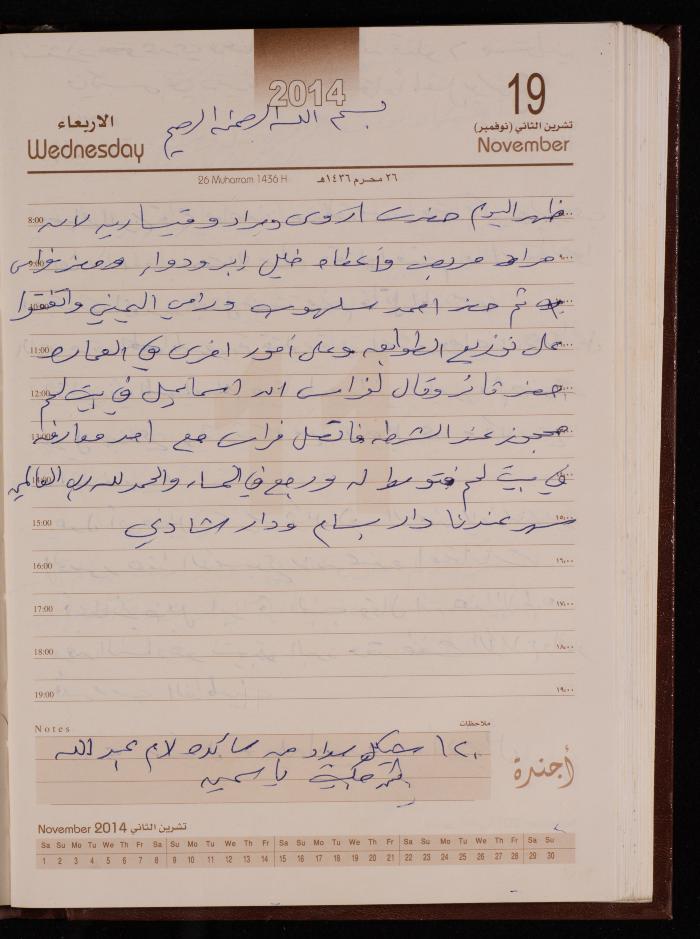 2014
19
الاربعاء
بسم الله الرحمن الرحيم
تشرين الثاني (نوفمبر)
Wednesday
November
26 Muharram 1436 H
٢٦ محرم ١٤٣٦هـ
8:00 ظهر اليوم حضرت اروى ومراد وقيساريه لانه
9:00 مراد مريض وأعطاه خليل ابر ودواء وحضر فراس ٩:٠٠
10:00 ثم حضر احمد سلهوب ورامي اليمني واتفقوا
11:00 على توزيع الطوابق وعلى أمور اخرى في العماره
12:00 حضر فائز وقال لفراس ان اسماعيل في بيت لحم
13:00 محجوز عند الشرطه فاتصل فراس مع احد معارفه
14:00 في بيت لحم فتوسط له ورجع في المساء والحمد لله رب العالمين
15:00 سهر عندنا دار بسام ودار شادي ١٥:٠٠
16:00 ١٦:٠٠
17:00 ١٧:٠٠
18:00 ١٨:٠٠
19:00 ١٩:٠٠
Notes ملاحظات
١٢٠ شيكل سداد من لام عبد الله
ياسمين
أجندة
November 2014 تشرين الثاني
Sa Su Mo Tu We Th Fr Sa Su Mo Tu We Th Fr Sa Su Mo Tu We Th Fr Sa Su Mo Tu We Th Fr Sa Su
1 2 3 4 5 6 7 8 9 10 11 12 13 14 15 16 17 18 19 20 21 22 23 24 25 26 27 28 29 30